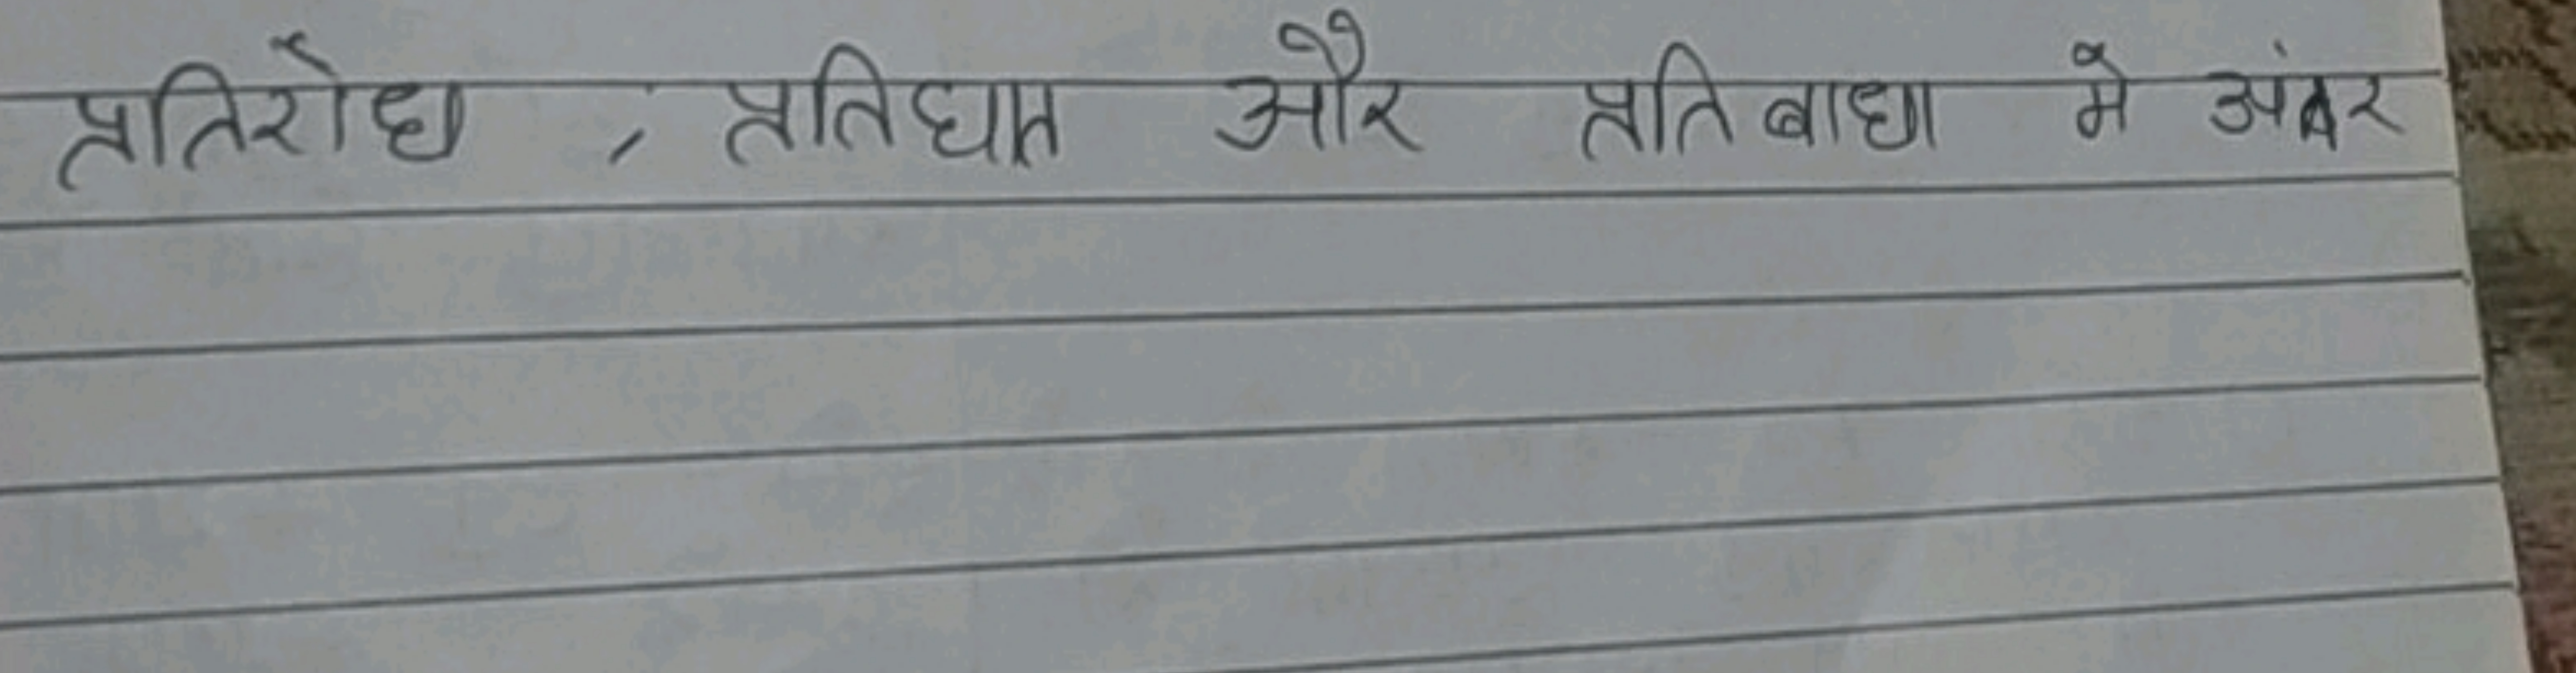 प्रतिरोध , प्रतिघात और प्रतिबाधा में अंतर